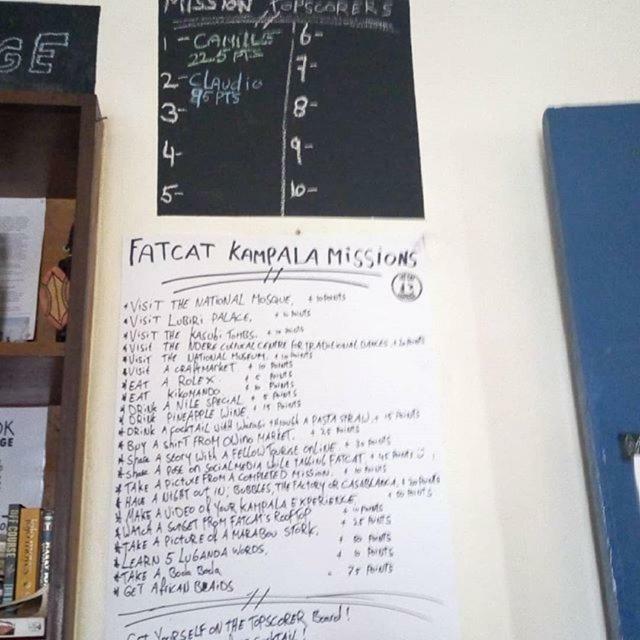 MISSION TOPSCORERS
1 - CAMILLE
22.5 PTS
2- Claudio
95 PTS
3-
4-
5-
6-
7-
8-
9-
10-
GE
FATCAT KAMPALA MISSIONS
* VISIT THE NATIONAL MOSQUE, + 10 POINTS
* VISIT LUBIRI PALACE, + 10 POINTS
* VISIT THE KASUBI TOMBS, + 10 POINTS
* VISIT THE NDERE CULTURAL CENTRE FOR TRADITIONAL DANCES, + 30 POINTS
* VISIT THE NATIONAL MUSEUM, + 10 POINTS
* VISIT A CRAFTMARKET + 10 POINTS
* EAT A ROLEX + 5 POINTS
* EAT KIKOMANDO + 10 POINTS
* DRINK A NILE SPECIAL + 5 POINTS
* DRINK PINEAPPLE WINE, + 15 POINTS
* DRINK A COCKTAIL with Waragi through a PASTA STRAW, + 15 POINTS
* BUY A SHIRT FROM OWINO MARKET, + 25 POINTS
* Share a STORY WITH A FELLOW TOURIST ONLINE + 30 POINTS
* Share A POST ON SOCIALMEDIA while TAGGING FATCAT, + 45 POINTS
* TAKE A PICTURE FROM A COMPLETED MISSION, + 10 POINTS
* HAVE A NIGHT OUT IN: BUBBLES, THE FACTORY OR CASABLANCA, + 20 POINTS
* MAKE A VIDEO OF YOUR KAMPALA EXPERIENCE + 50 POINTS
* WATCH A SUNSET FROM FATCAT'S ROOFTOP + 10 POINTS
* TAKE A PICTURE OF A MARABOU STORK, + 25 POINTS
* LEARN 5 LUGANDA WORDS, POINTS
* TAKE A Boda Boda POINTS
* GET AFRICAN BRAIDS 75 POINTS
GET YOURSELF ON THE TOPSCORER Board!